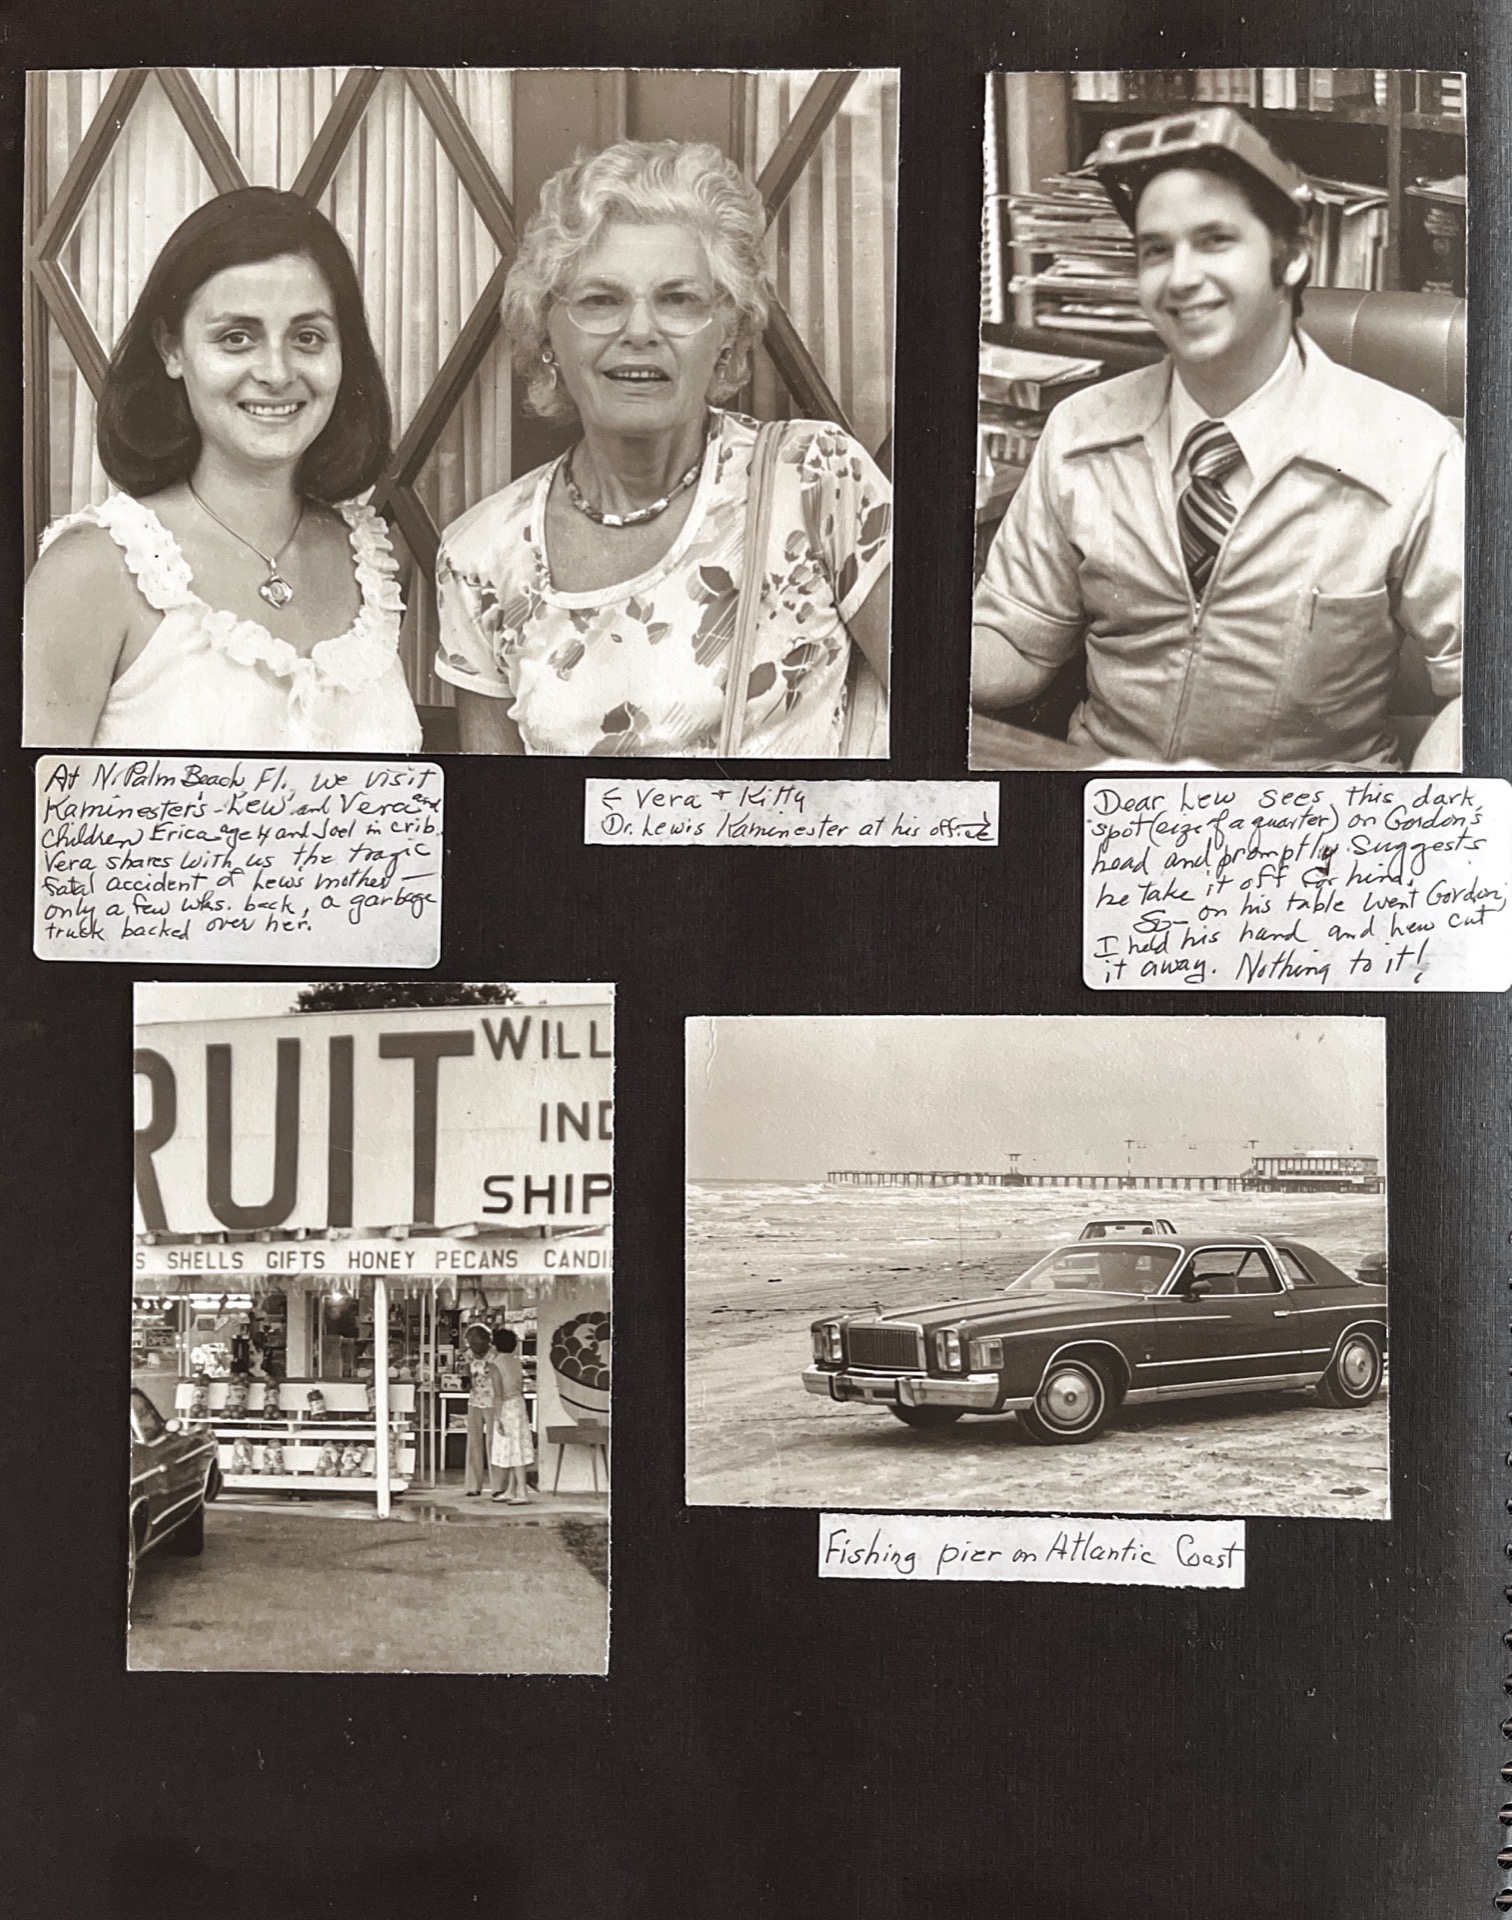 At N. Palm Beach, Fl., we visit
Kaminester's - Lew and Vera and
children, Erica age 4 and Joel in crib.
Vera shares with us the tragic
fatal accident of Lew's mother —
only a few wks. back, a garbage
truck backed over her.
← Vera + Kitty
Dr. Lewis Kaminester at his office
Dear Lew sees this dark
spot (size of a quarter) on Gordon's
head and promptly suggests
he take it off for him.
So - on his table went Gordon,
I held his hand and Lew cut
it away. Nothing to it!
RUIT
WILL
IND
SHIP
S SHELLS GIFTS HONEY PECANS CANDI
OPEN
Fishing pier on Atlantic Coast